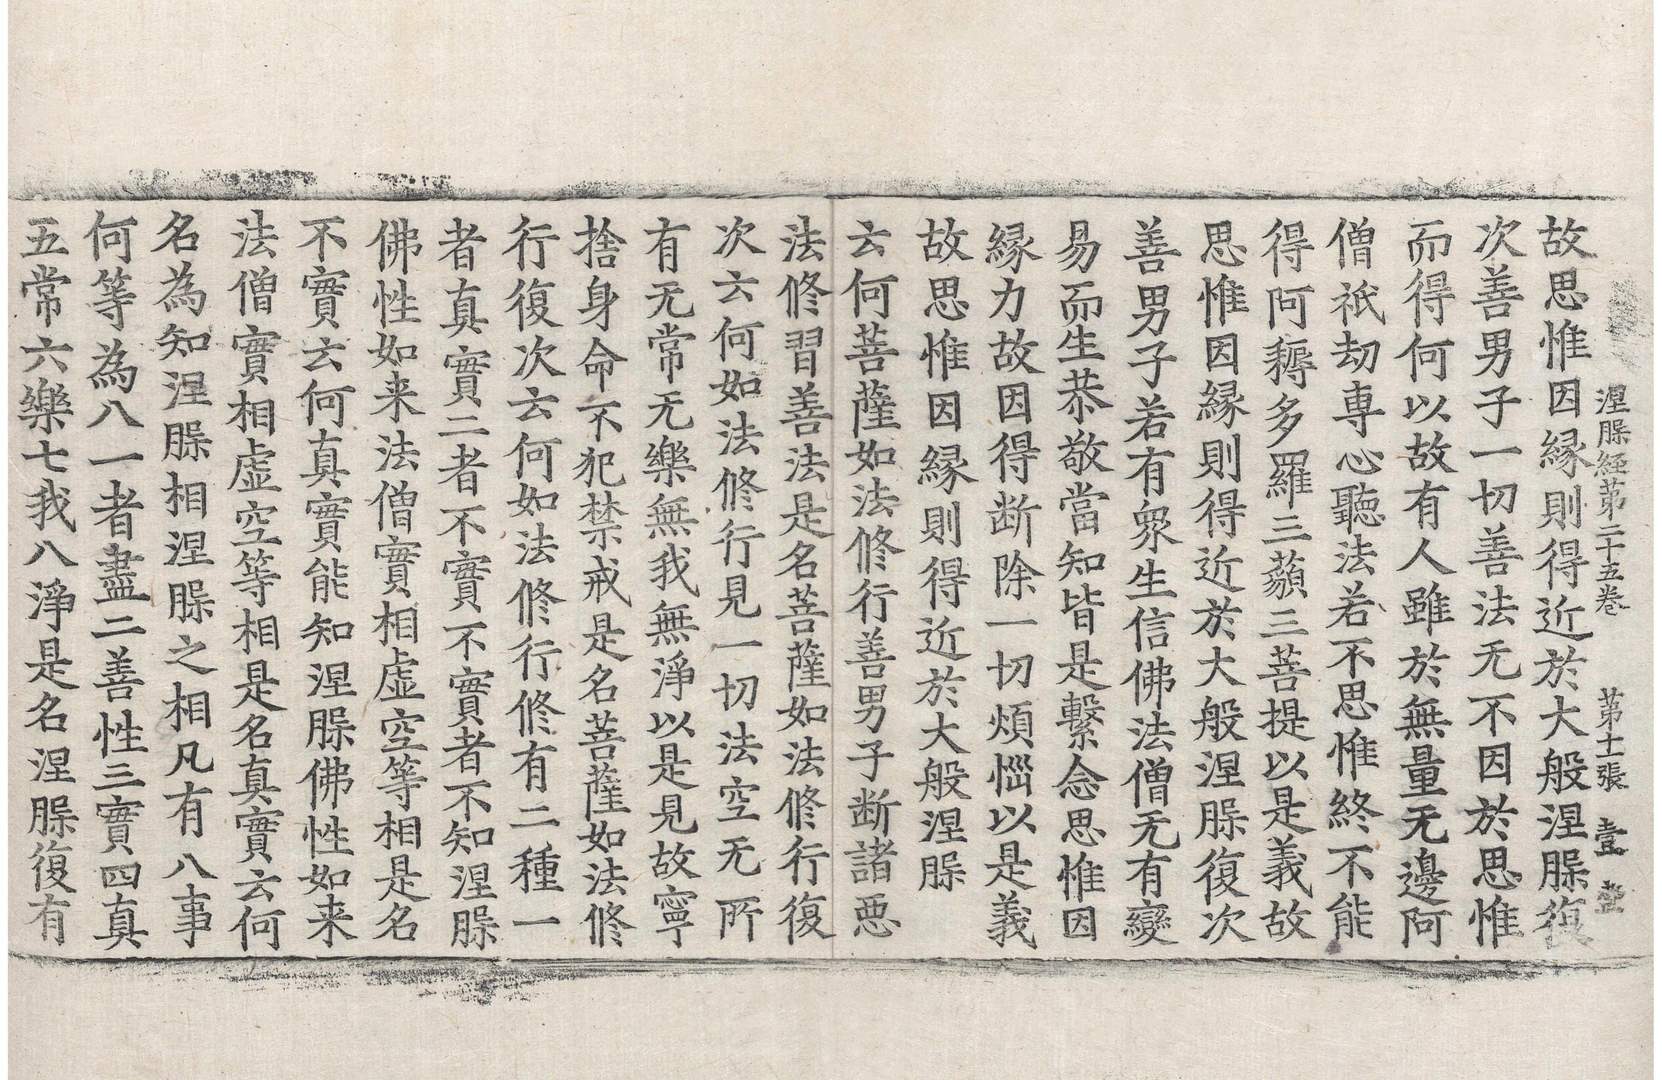 涅槃経第二十五卷　第十一張　壹
故思惟因縁則得近於大般涅槃復
次善男子一切善法无不因於思惟
而得何以故有人雖於無量无邊阿
僧祇劫専心聽法若不思惟終不能
得阿耨多羅三藐三菩提以是義故
思惟因縁則得近於大般涅槃復次
善男子若有衆生信佛法僧无有變
易而生恭敬當知皆是繫念思惟因
縁力故因得断除一切煩惱以是義
故思惟因縁則得近於大般涅槃
云何菩薩如法修行善男子断諸悪
法修習善法是名菩薩如法修行復
次云何如法修行見一切法空无所
有无常无樂無我無淨以是見故寧
捨身命不犯禁戒是名菩薩如法修
行復次云何如法修行修有二種一
者真實二者不實不實者不知涅槃
佛性如来法僧實相虚空等相是名
不實云何真實能知涅槃佛性如来
法僧實相虚空等相是名真實云何
名為知涅槃相涅槃之相凡有八事
何等為八一者盡二善性三實四真
五常六樂七我八淨是名涅槃復有